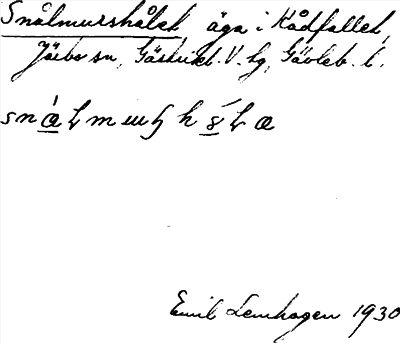 Snålmurshålet äga i Kådfallet,
Järbo sn, Gästrikl. V. tg, Gävleb. l.
Emil Lemhagen 1930